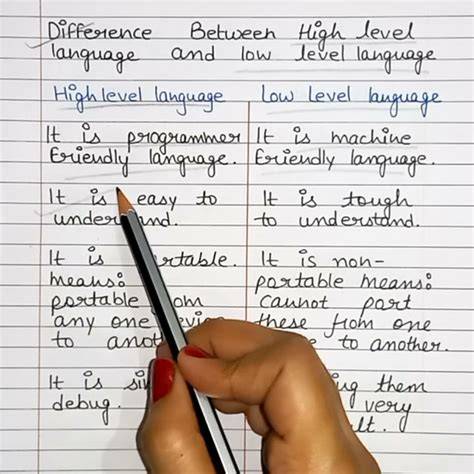 Difference Between High level
language and low level language
High level language
It is programmer
Friendly language.
It is easy to
understand.
It is
means:
portable
any one
to
It is
debug.
Low Level language
It is machine
Friendly language.
It is tough
to understand.
It is non-
portable means:
Cannot port
these from one
to another.
them
very